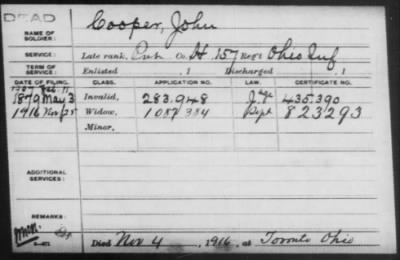 DEAD
NAME OF SOLDIER: Cooper, John
SERVICE: Late rank, Co. H 157 Reg't Ohio Inf
TERM OF SERVICE: Enlisted , 1 Discharged , 1
DATE OF FILING. CLASS. APPLICATION NO. LAW. CERTIFICATE NO.
1907 Feb. 11
1879 May 3 Invalid, 283.948 435.390
1916 Nov 25 Widow, 1087384 Sept 823293
Minor,
ADDITIONAL SERVICES:
REMARKS:
Died Nov 4, 1916, at Toronto Ohio